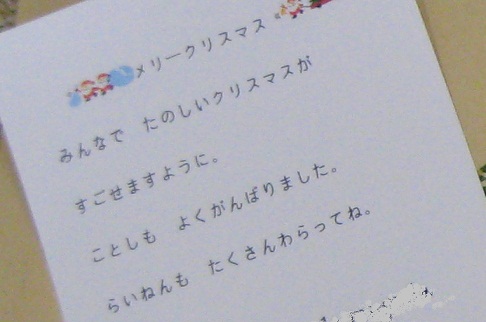 メリークリスマス
みんなで たのしいクリスマスが
すごせますように。
ことしも よくがんばりました。
らいねんも たくさんわらってね。